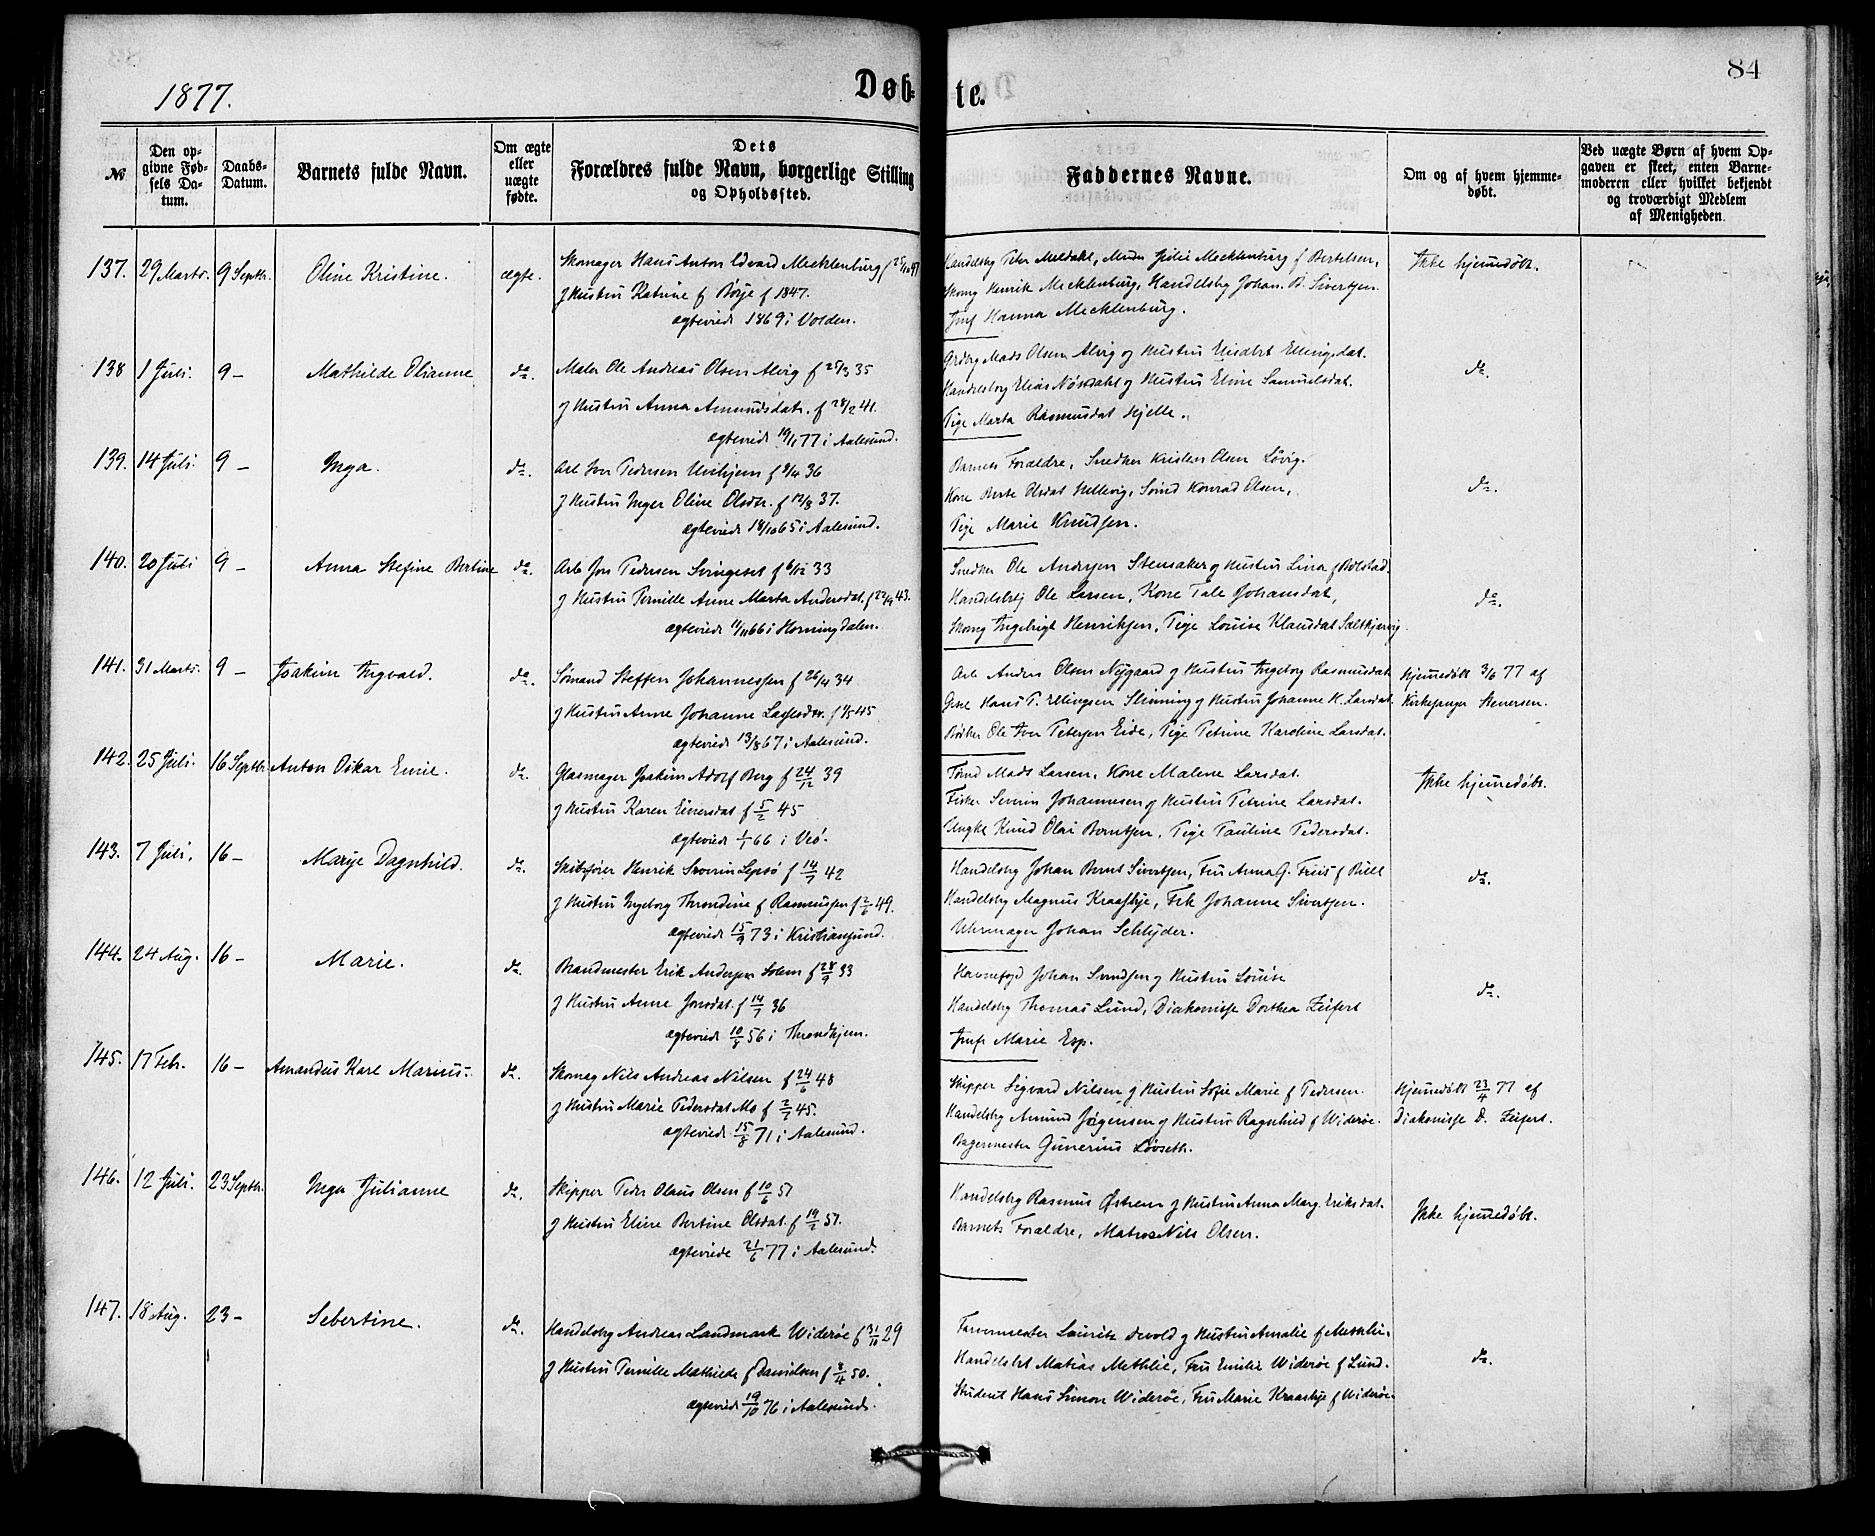 84
1877.
Døb- te.
№
Den opgivne Fødsels Datum.
Daabs-Datum.
Barnets fulde Navn.
Om ægte eller uægte fødte.
Dets Forældres fulde Navn, borgerlige Stilling og Opholdssted.
Faddernes Navne.
Om og af hvem hjemmedøbt.
Ved uægte Børn af hvem Opgaven er skeet, enten Barnemoderen eller hvilket bekjendt og troværdigt Medlem af Menigheden.
137. 29 Marts. 9 Septbr. Oline Kristine. ægte.
Skomager Hans Anton Edvard Mecklenburg f 25/10 47
g Hustru Katrine f Børje f 1847.
ægteviede 1869 i Volden.
Handelsbg Peter Meldahl, Mecklenburg f Bertelsen,
Skomg Henrik Mecklenburg, Handelsbg Johan B. Sivertsen
Jmf Hanna Mecklenburg.
Ikke hjemmedøbt.
138 1 Juli. 9 - Mathilde Olianne do.
Maler Ole Andreas Olsen Alvig f 25/3 35
g Hustru Anna Amundsdatr. f 28/2 41.
ægteviede 19/1 77 i Aalesund.
Grdbrg Mads Olsen Alvig og Hustru Ellingsdat.
Handelsbrg Elias Nøsdahl g Hustru Eline Samuelsdat.
Pige Marta Rasmusdat Hjelle.
do.
139. 14 Juli. 9 - Inga. do.
Arb Iver Pedersen f 9/4 36
g Hustru Inger Oline Olsdtr. f 12/3 37.
ægteviede 18/10 65 i Aalesund.
Barnets Forældre, Snedker Kristen Olsen Løvig.
Kone Berte Olsdat Hellevig, Sømd Konrad Olsen,
Pige Marie Knudsen.
do.
140. 20 Juli 9 - Anna Stefine Bertine do.
Arb Jon Pedersen Svingeset f 6/12 33
g Hustru Pernille Anne Marta Andersdat. f 22/9 43.
ægteviede 11/11 66 i Horningdalen.
Snedker Ole Andersen Stensaker g Hustru Lina f Bolstad.
Handelsbtj Ole Larsen, Kone Tale Johansdat,
Skomg Ingebrigt Henriksen, Pige Louise Klausdat Saltkjærvig.
do.
141. 31 Marts. 9 - Joakim Ingvald. do.
Sømand Steffen Johannessen f 26/4 34
g Hustru Anne Johanne Lassesdtr. f 1/5 45
ægteviede 13/8 67 i Aalesund.
Arb Anders Olsen Nygaard g Hustru Ingeborg Rasmusdat
Hans P. Ellingsen Slinning g Hustru Johanne K. Larsdat.
Bødker Ole Iver Petersen Eide, Pige Petrine Karoline Larsdat.
Hjemmedøbt 3/6 77 af
Kirkesanger Stenersen.
142. 25 Juli. 16 Septbr. Anton Oskar Emil. do.
Glasmager Joakim Adolf Berg f 24/12 39
g Hustru Karen Einersdat f 5/2 45
ægteviede 1/1 66 i Veø.
Tømd Mads Larsen, Kone Malene Larsdat.
Fisker Severin Johannesen g Hustru Petrine Larsdat.
Ungk Knud Olai Berntsen, Pige Pauline Pedersdat.
Ikke hjemmedøbt.
143. 7 Juli. 16 - Marije Dagnhild. do.
Skibsfører Henrik Severin Lepsø f 14/7 42
g Hustru Ingeborg Throndine f Rasmussen f 2/6 49.
ægteviede 15/9 73 i Kristiansund.
Handelsbg Johan Bernt Sivertsen, Fru Anna G. Friis f Bull
Handelsbg Magnus Kraafshje, Frk Johanne Sivertsen.
Uhrmager Johan Schlyder.
do.
144. 24 Aug. 16 - Marie. do.
Brandmester Erik Andersen Solem f 28/9 33
g Hustru Anne Jonsdat. f 14/7 36
ægteviede 10/8 56 i Throndhjem.
Havnefogd Johan Svendsen g Hustru Louise
Handelsbg Thomas Lund, Diakonisse Dorthea Zeifert
Jmfr Marie Esp.
do.
145. 17 Febr. 16 - Amandus Karl Marius. do.
Skomag Nils Andreas Nilsen f 24/6 48
g Hustru Marie Pedersdat Mo f 2/7 45.
ægteviede 15/8 71 i Aalesund.
Skipper Sigvard Nilsen g Hustru Sofie Marie f Pedersen.
Handelsbg Amund Jørgensen g Hustru Ragnhild f Widerøe.
Bagermester Gunerius Løvseth.
Hjemmedøbt 23/4 77 af
Diakonisse D. Zeifert.
146. 12 Juli. 23 Septbr. Inga Julianne do.
Skipper Peder Olaus Olsen f 10/6 51
g Hustru Eline Bertine Olsdat. f 19/2 51.
ægteviede 21/6 77 i Aalesund.
Handelsbg Rasmus Østrem g Hustru Anna Marg. Eriksdat.
Barnets Forældre, Matros Nils Olsen.
Ikke hjemmedøbt.
147. 18 Aug. 23 - Sebertine. do.
Handelsbg Andreas Landmark Widerøe f 31/10 29
g Hustru Pernille Mathilde f Danielsen f 8/4 50.
ægteviede 19/10 76 i Aalesund.
Farvermester Lauritz Devold g Hustru Amalie f Methlie.
Handelsbt Matias Methlie, Fru Emilie Widerøe f Lund.
Student Hans Simon Widerøe, Fru Marie Kraafshje f Widerøe.
do.